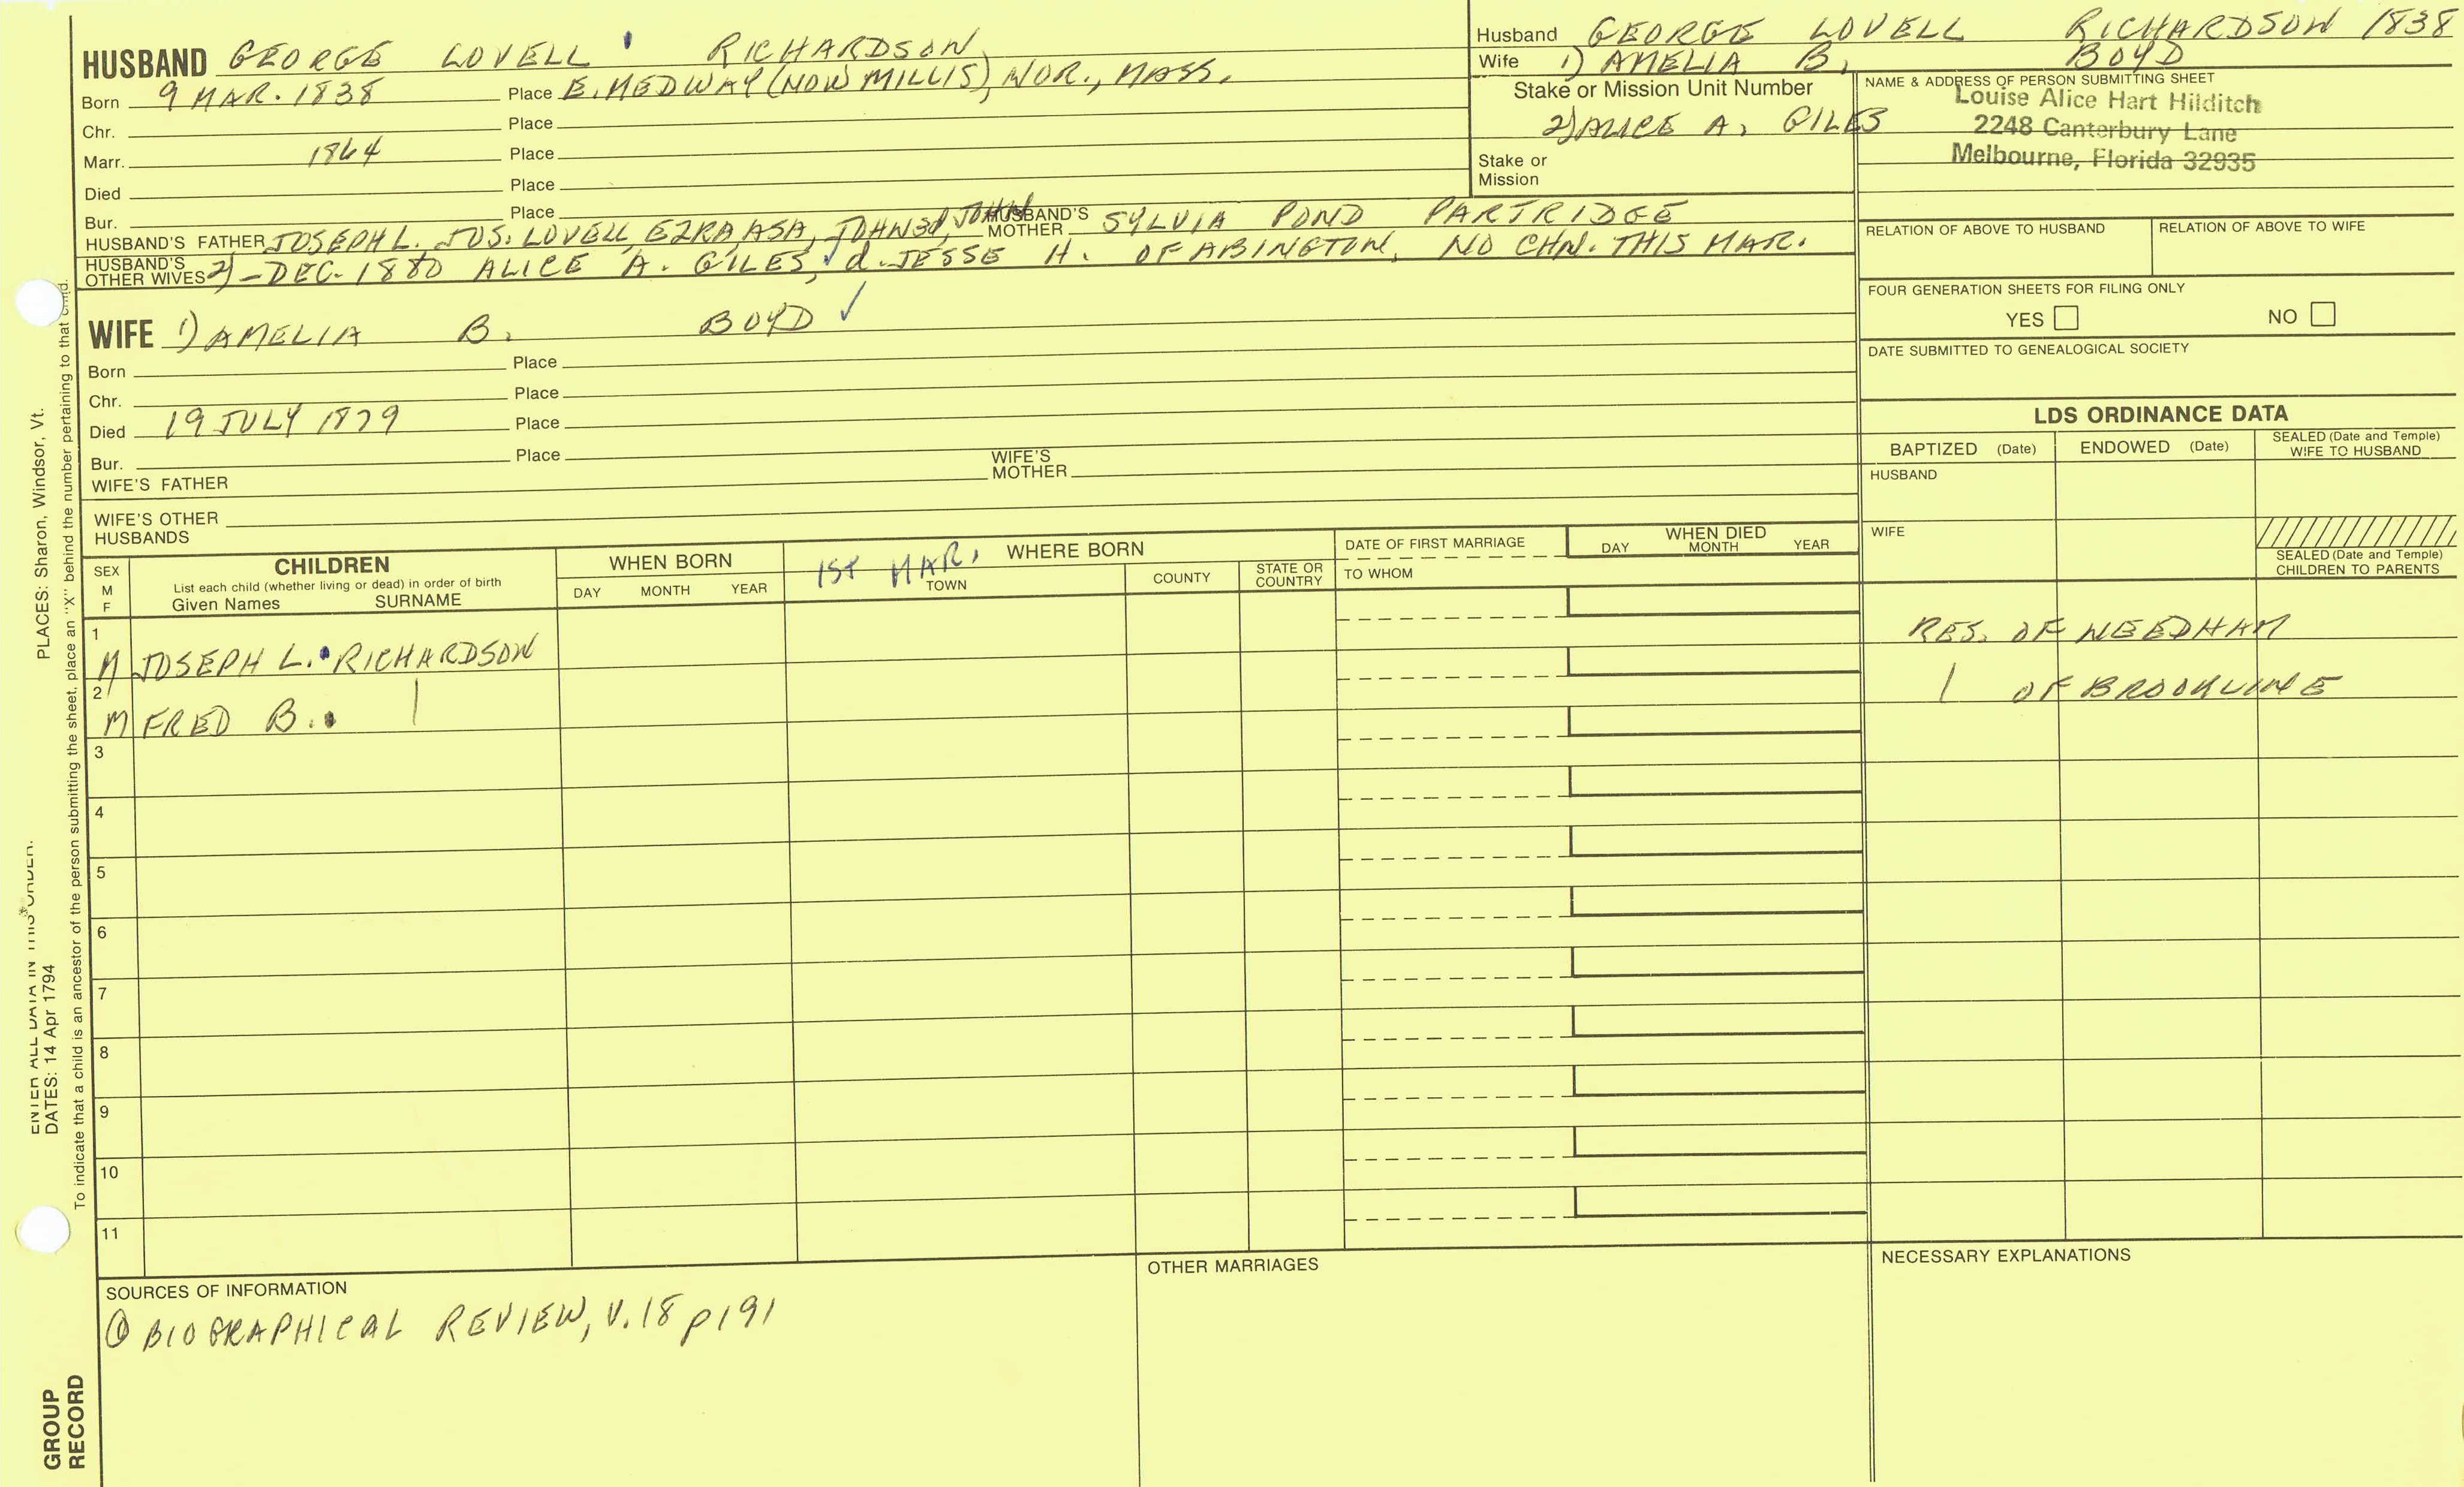 HUSBAND GEORGE LOVELL RICHARDSON
Born 9 MAR. 1838 Place E. MEDWAY (NOW MILLIS), NOR., MASS.
Chr. Place
Marr. 1864 Place
Died Place
Bur. Place
HUSBAND'S FATHER JOSEPH L. JOS. LOVELL, EZRA, ASA, JOHN3d, JOHN HUSBAND'S MOTHER SYLVIA POND PARTRIDGE
HUSBAND'S OTHER WIVES 2) - DEC. 1880 ALICE A. GILES, d. JESSE H. OF ABINGTON, NO CHN. THIS MAR.
WIFE 1) AMELIA B. BOYD ✓
Born Place
Chr. Place
Died 19 JULY 1879 Place
Bur. Place
WIFE'S FATHER WIFE'S MOTHER
WIFE'S OTHER HUSBANDS
Husband GEORGE LOVELL RICHARDSON 1838
Wife 1) AMELIA B. BOYD
Stake or Mission Unit Number
2) ALICE A. GILES
Stake or Mission
NAME & ADDRESS OF PERSON SUBMITTING SHEET
Louise Alice Hart Hilditch
2248 Canterbury Lane
Melbourne, Florida 32935
RELATION OF ABOVE TO HUSBAND RELATION OF ABOVE TO WIFE
FOUR GENERATION SHEETS FOR FILING ONLY
YES NO
DATE SUBMITTED TO GENEALOGICAL SOCIETY
LDS ORDINANCE DATA
BAPTIZED (Date) ENDOWED (Date) SEALED (Date and Temple) WIFE TO HUSBAND
HUSBAND
WIFE
SEALED (Date and Temple) CHILDREN TO PARENTS
SEX M F
CHILDREN
List each child (whether living or dead) in order of birth
Given Names SURNAME
WHEN BORN
DAY MONTH YEAR
1ST MAR. WHERE BORN
TOWN COUNTY STATE OR COUNTRY
DATE OF FIRST MARRIAGE
TO WHOM
WHEN DIED
DAY MONTH YEAR
1 M JOSEPH L. RICHARDSON RES. OF NEEDHAM
2 M FRED B. | | OF BROOKLINE
3
4
5
6
7
8
9
10
11
SOURCES OF INFORMATION
① BIOGRAPHICAL REVIEW, V.18 p191
OTHER MARRIAGES
NECESSARY EXPLANATIONS
ENTER ALL DATA IN THIS ORDER:
DATES: 14 Apr 1794
PLACES: Sharon, Windsor, Vt.
To indicate that a child is an ancestor of the person submitting the sheet, place an "X" behind the number pertaining to that child.
GROUP
RECORD